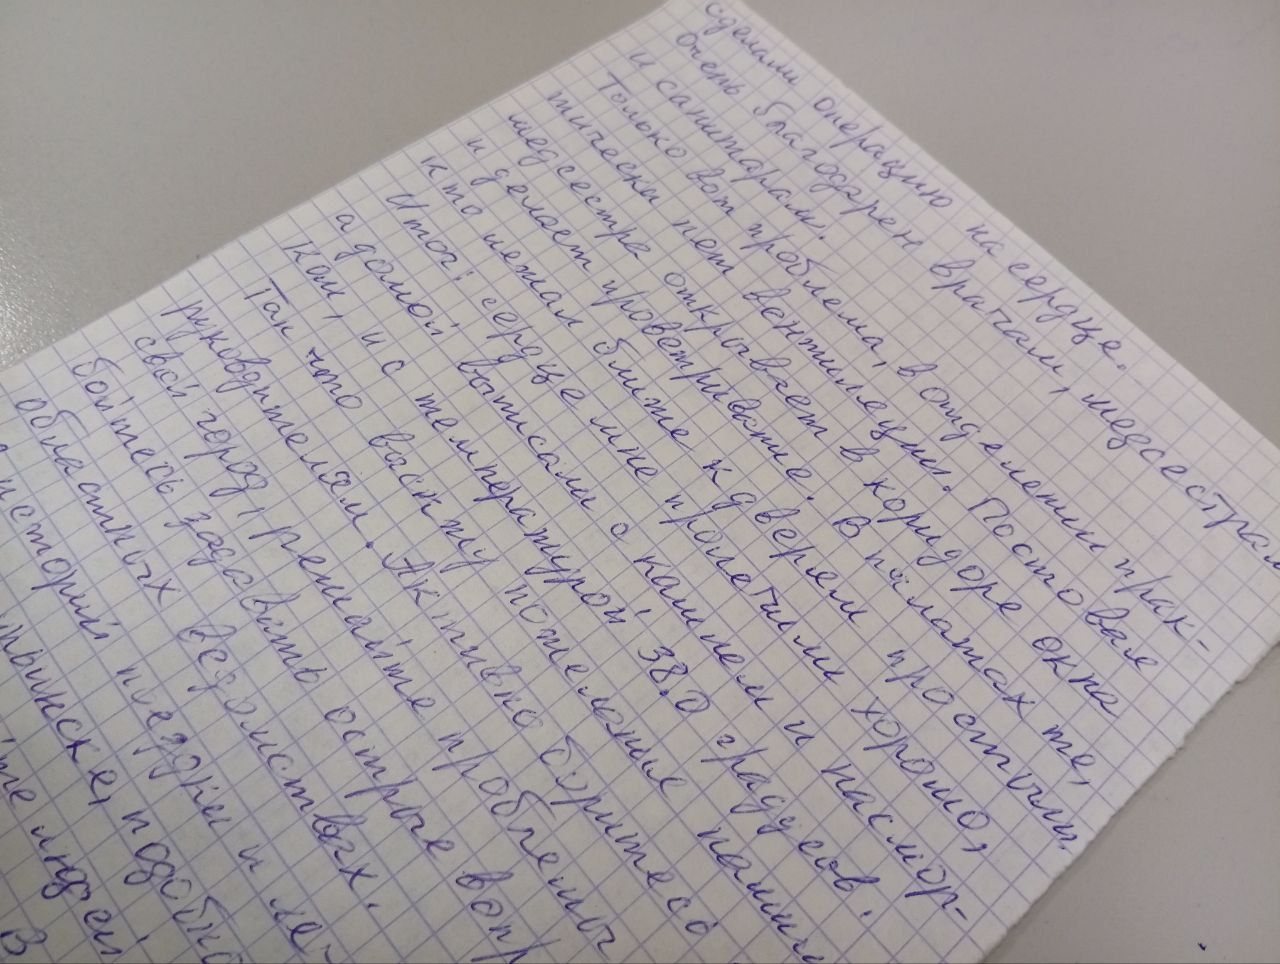 сделали операцию на сердце.
Очень благодарен врачам, медсестрам
и санитарам.
Только вот проблема, в отделении прак-
тически нет вентиляции. Постовая
медсестра открывает в коридоре окна
и делает проветривание. В палатах те,
кто лежал ближе к дверям простыли.
Итог: сердце мне пролечили хорошо,
а домой выписали с кашлем и насмор-
ком, и с температурой 38.0 градусов.
Так что васкту пожелание нашим
руководителям. Активно боритесь
свой город, решайте проблемы
бойтесь задавать острые вопр
областных ведомствах.
историй поездки и ле-
рынске, подобно
те людей
в